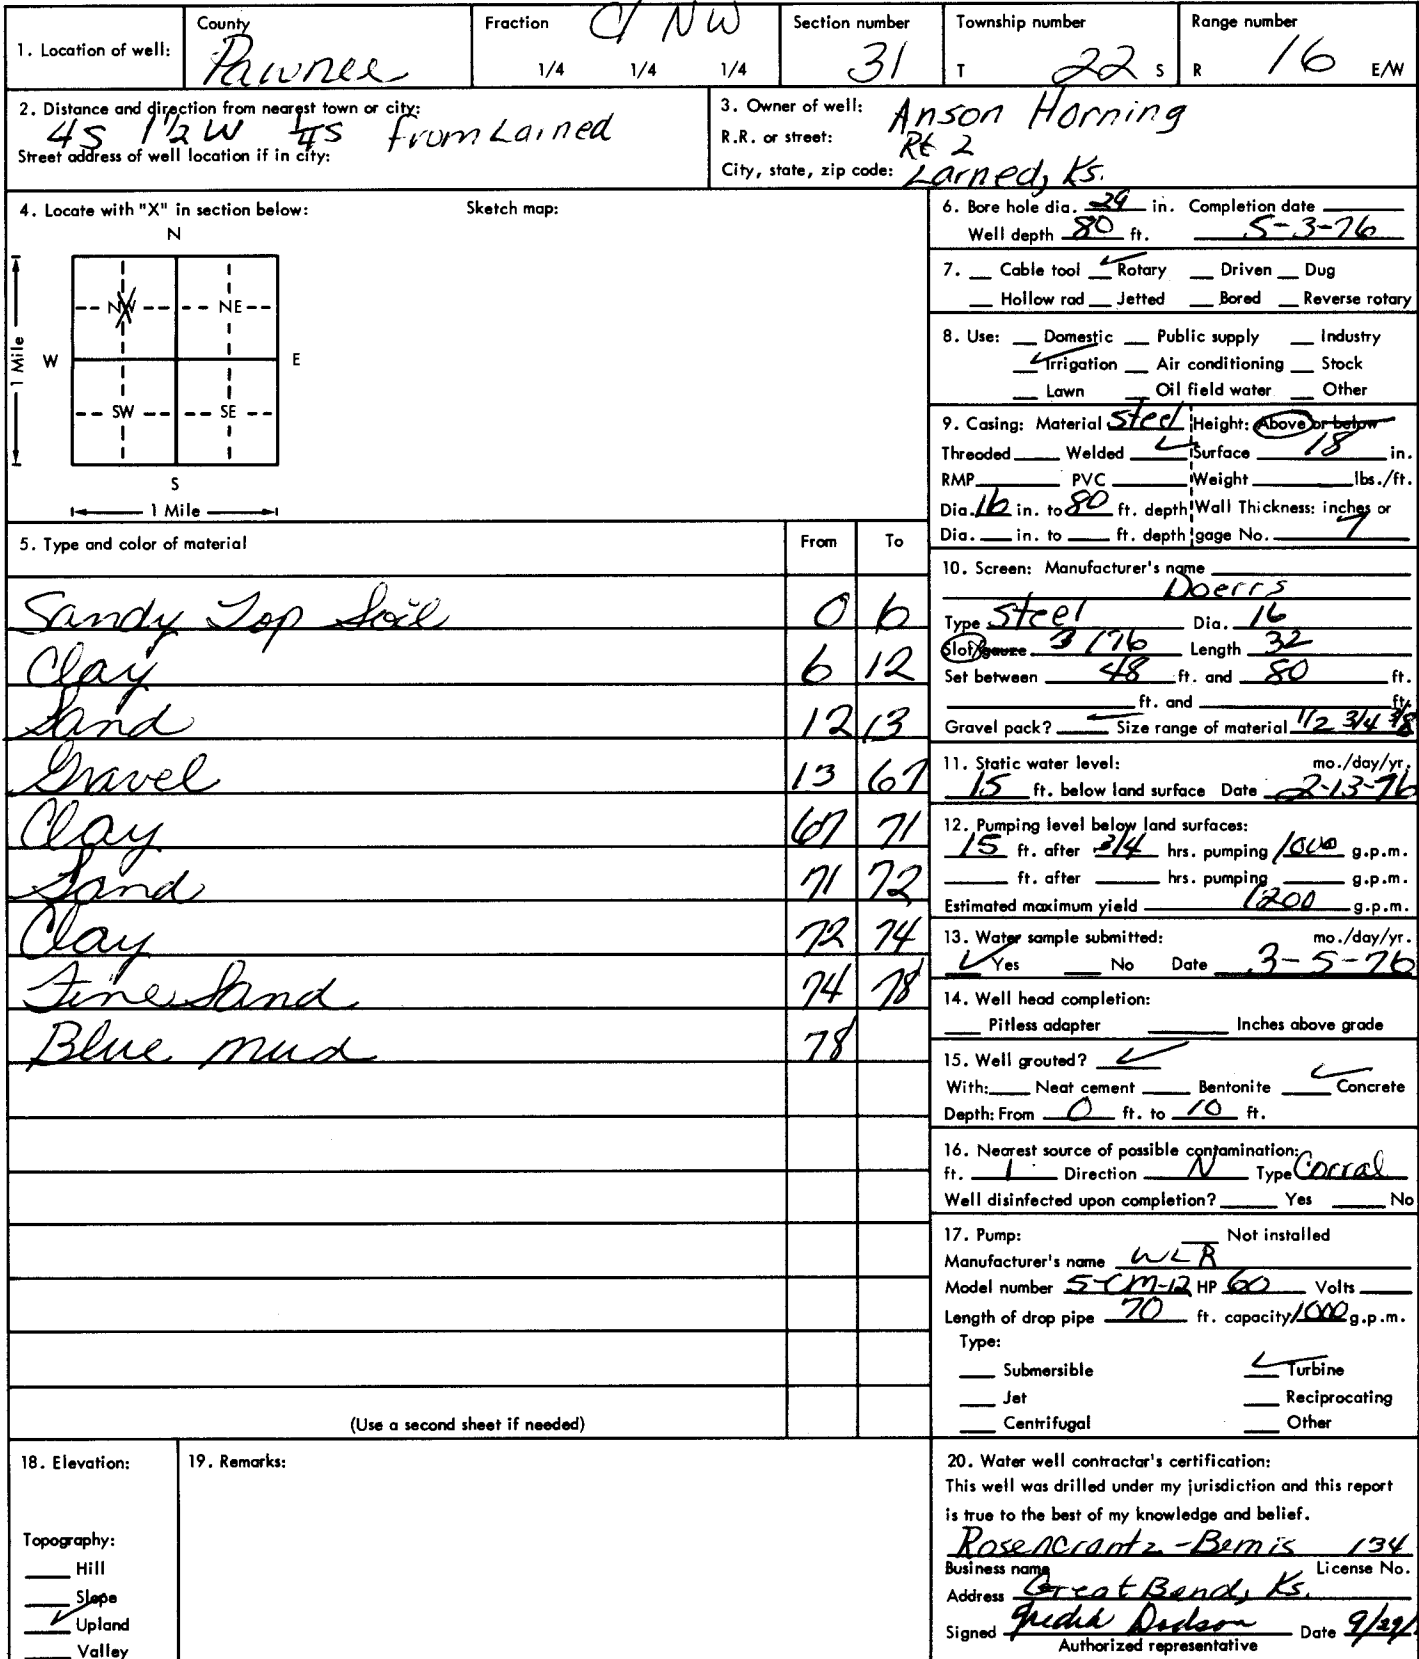 1. Location of well:
County
Pawnee
Fraction C/ NW
1/4 1/4 1/4
Section number
31
Township number
T 22 S
Range number
R 16 E/W
2. Distance and direction from nearest town or city:
4S 1 1/2 W 1/4 S from Larned
Street address of well location if in city:
3. Owner of well: Anson Horning
R.R. or street: Rt 2
City, state, zip code: Larned, Ks.
4. Locate with "X" in section below:
Sketch map:
N
NW NE
W E
SW SE
S
1 Mile
1 Mile
5. Type and color of material From To
Sandy Top Soil 0 6
Clay 6 12
Sand 12 13
Gravel 13 67
Clay 67 71
Sand 71 72
Clay 72 74
Fine Sand 74 78
Blue mud 78
(Use a second sheet if needed)
6. Bore hole dia. 29 in. Completion date
Well depth 80 ft. 5-3-76
7. Cable tool ✓ Rotary Driven Dug
Hollow rad Jetted Bored Reverse rotary
8. Use: Domestic Public supply Industry
✓ Irrigation Air conditioning Stock
Lawn Oil field water Other
9. Casing: Material Steel Height: Above or below
Threaded Welded ✓ Surface 18 in.
RMP PVC Weight lbs./ft.
Dia. 16 in. to 80 ft. depth Wall Thickness: inches or
Dia. in. to ft. depth gage No. 7
10. Screen: Manufacturer's name
Doerrs
Type Steel Dia. 16
Slot/gauze 3/176 Length 32
Set between 48 ft. and 80 ft.
ft. and ft.
Gravel pack? ✓ Size range of material 1/2 3/4 3/8
11. Static water level: mo./day/yr.
15 ft. below land surface Date 2-13-76
12. Pumping level below land surfaces:
15 ft. after 3/4 hrs. pumping 1000 g.p.m.
ft. after hrs. pumping g.p.m.
Estimated maximum yield 1200 g.p.m.
13. Water sample submitted: mo./day/yr.
✓ Yes No Date 3-5-76
14. Well head completion:
Pitless adapter Inches above grade
15. Well grouted? ✓
With: Neat cement Bentonite ✓ Concrete
Depth: From 0 ft. to 10 ft.
16. Nearest source of possible contamination:
ft. 1 Direction N Type Corral
Well disinfected upon completion? Yes No
17. Pump: Not installed
Manufacturer's name WLR
Model number 5-CM-12 HP 60 Volts
Length of drop pipe 70 ft. capacity 1000 g.p.m.
Type:
Submersible ✓ Turbine
Jet Reciprocating
Centrifugal Other
18. Elevation:
Topography:
Hill
Slope
✓ Upland
Valley
19. Remarks:
20. Water well contractor's certification:
This well was drilled under my jurisdiction and this report
is true to the best of my knowledge and belief.
Rosencrantz-Bemis 134
Business name License No.
Address Great Bend, Ks.
Signed Dodson Date 9/29/
Authorized representative